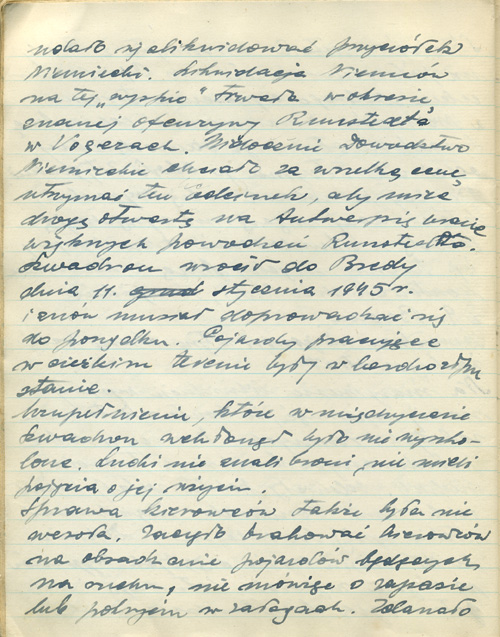 udało się zlikwidować przyczółek
Niemiecki. Likwidacja Niemców
na tej „wyspie" trwała w okresie
znanej ofenzywy Runstedta
w Vogezach. Widocznie Dowództwo
Niemieckie chciało za wszelką cenę
utrzymać ten odcinek, aby mieć
drogę otwartą na Antwerpię w razie
większych powodzeń Runstedta.
Szwadron wrócił do Bredy
dnia 11. grud stycznia 1945 r.
i znów musiał doprowadzać się
do porządku. Pojazdy pracujące
w ciężkim terenie były w bardzo złym
stanie.
Uzupełnienie, które w międzyczasie
szwadron wchłonął było nie wyszko-
lone. Ludzie nie znali broni, nie mieli
pojęcia o jej użyciu.
Sprawa kierowców także była nie
wesoła. Zaczęło brakować kierowców
na obsadzenie pojazdów będących
na chodzie, nie mówiąc o zapasie
lub pełnym w załogach. Zdarzało